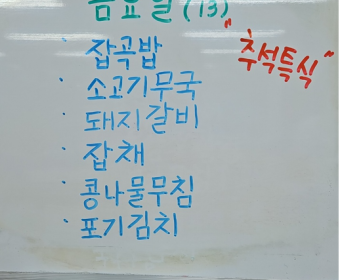 금요일(13)
"추석특식"
· 잡곡밥
· 소고기무국
· 돼지갈비
· 잡채
· 콩나물무침
· 포기김치